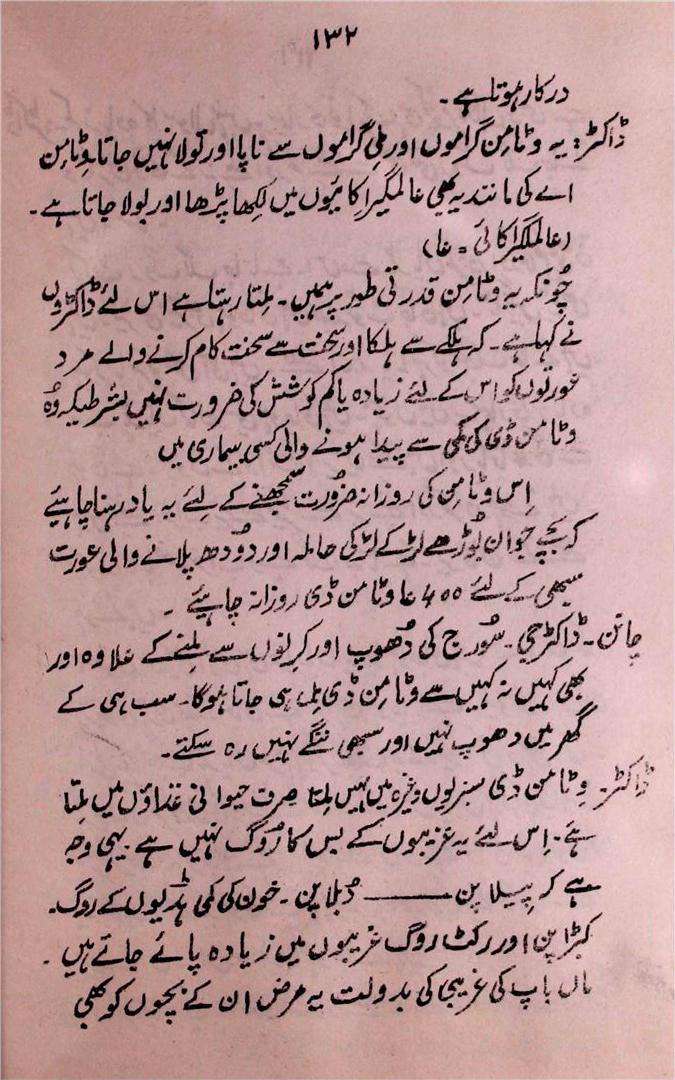 ۱۳۲
درکار ہوتا ہے۔
ڈاکٹر: یہ وٹامن گراموں اور ملی گراموں سے ناپا اور تولا نہیں جاتا۔ وٹامن
اے کی مانند یہ بھی عالمگیر اکائیوں میں لکھا پڑھا اور بولا جاتا ہے۔
(عالمگیر اکائی = عا)
چُونکہ یہ وٹامن قدرتی طور پر ہمیں۔ ملتا رہتا ہے اس لئے ڈاکٹروں
نے کہا ہے۔ کہ ہلکے سے ہلکا اور سخت سے سخت کام کرنے والے مرد
عورتوں کو اس کے لئے زیادہ یا کم کوشش کی ضرورت نہیں بشرطیکہ وُہ
وٹامن ڈی کی کمی سے پیدا ہونے والی کسی بیماری میں
اِس وٹامن کی روزانہ ضرُورت سمجھنے کے لِئے یہ یاد رہنا چاہیئے
کہ بچے جوان بُوڑھے لڑکے لڑکی حاملہ اور دُودھ پلانے والی عورت
سبھی کے لئے ۴۰۰ عا وٹامن ڈی روزانہ چاہیئے۔
چانن۔ ڈاکٹر جی۔ سُورج کی دُھوپ اور کرنوں سے ملنے کے علاوہ اور
بھی کہیں نہ کہیں سے وٹامن ڈی مِل ہی جاتا ہوگا۔ سب ہی کے
گھر میں دھوپ نہیں اور سبھی ننگے نہیں رہ سکتے۔
ڈاکٹر۔ وٹامن ڈی سبزیوں وغیرہ میں نہیں ملتا صرف حیوانی غذاؤں میں مِلتا
ہے۔ اِس لئے یہ غریبوں کے بس کا رُوگ نہیں ہے یہی وجہ
ہے کہ پیلا پن ـــــــ دُبلا پن۔ خون کی کمی ہڈیوں کے روگ۔
کبڑا پن اور رکٹ روگ غریبوں میں زیادہ پائے جاتے ہیں۔
ماں باپ کی غریبی کی بدولت یہ مرض ان کے بچوں کو بھی